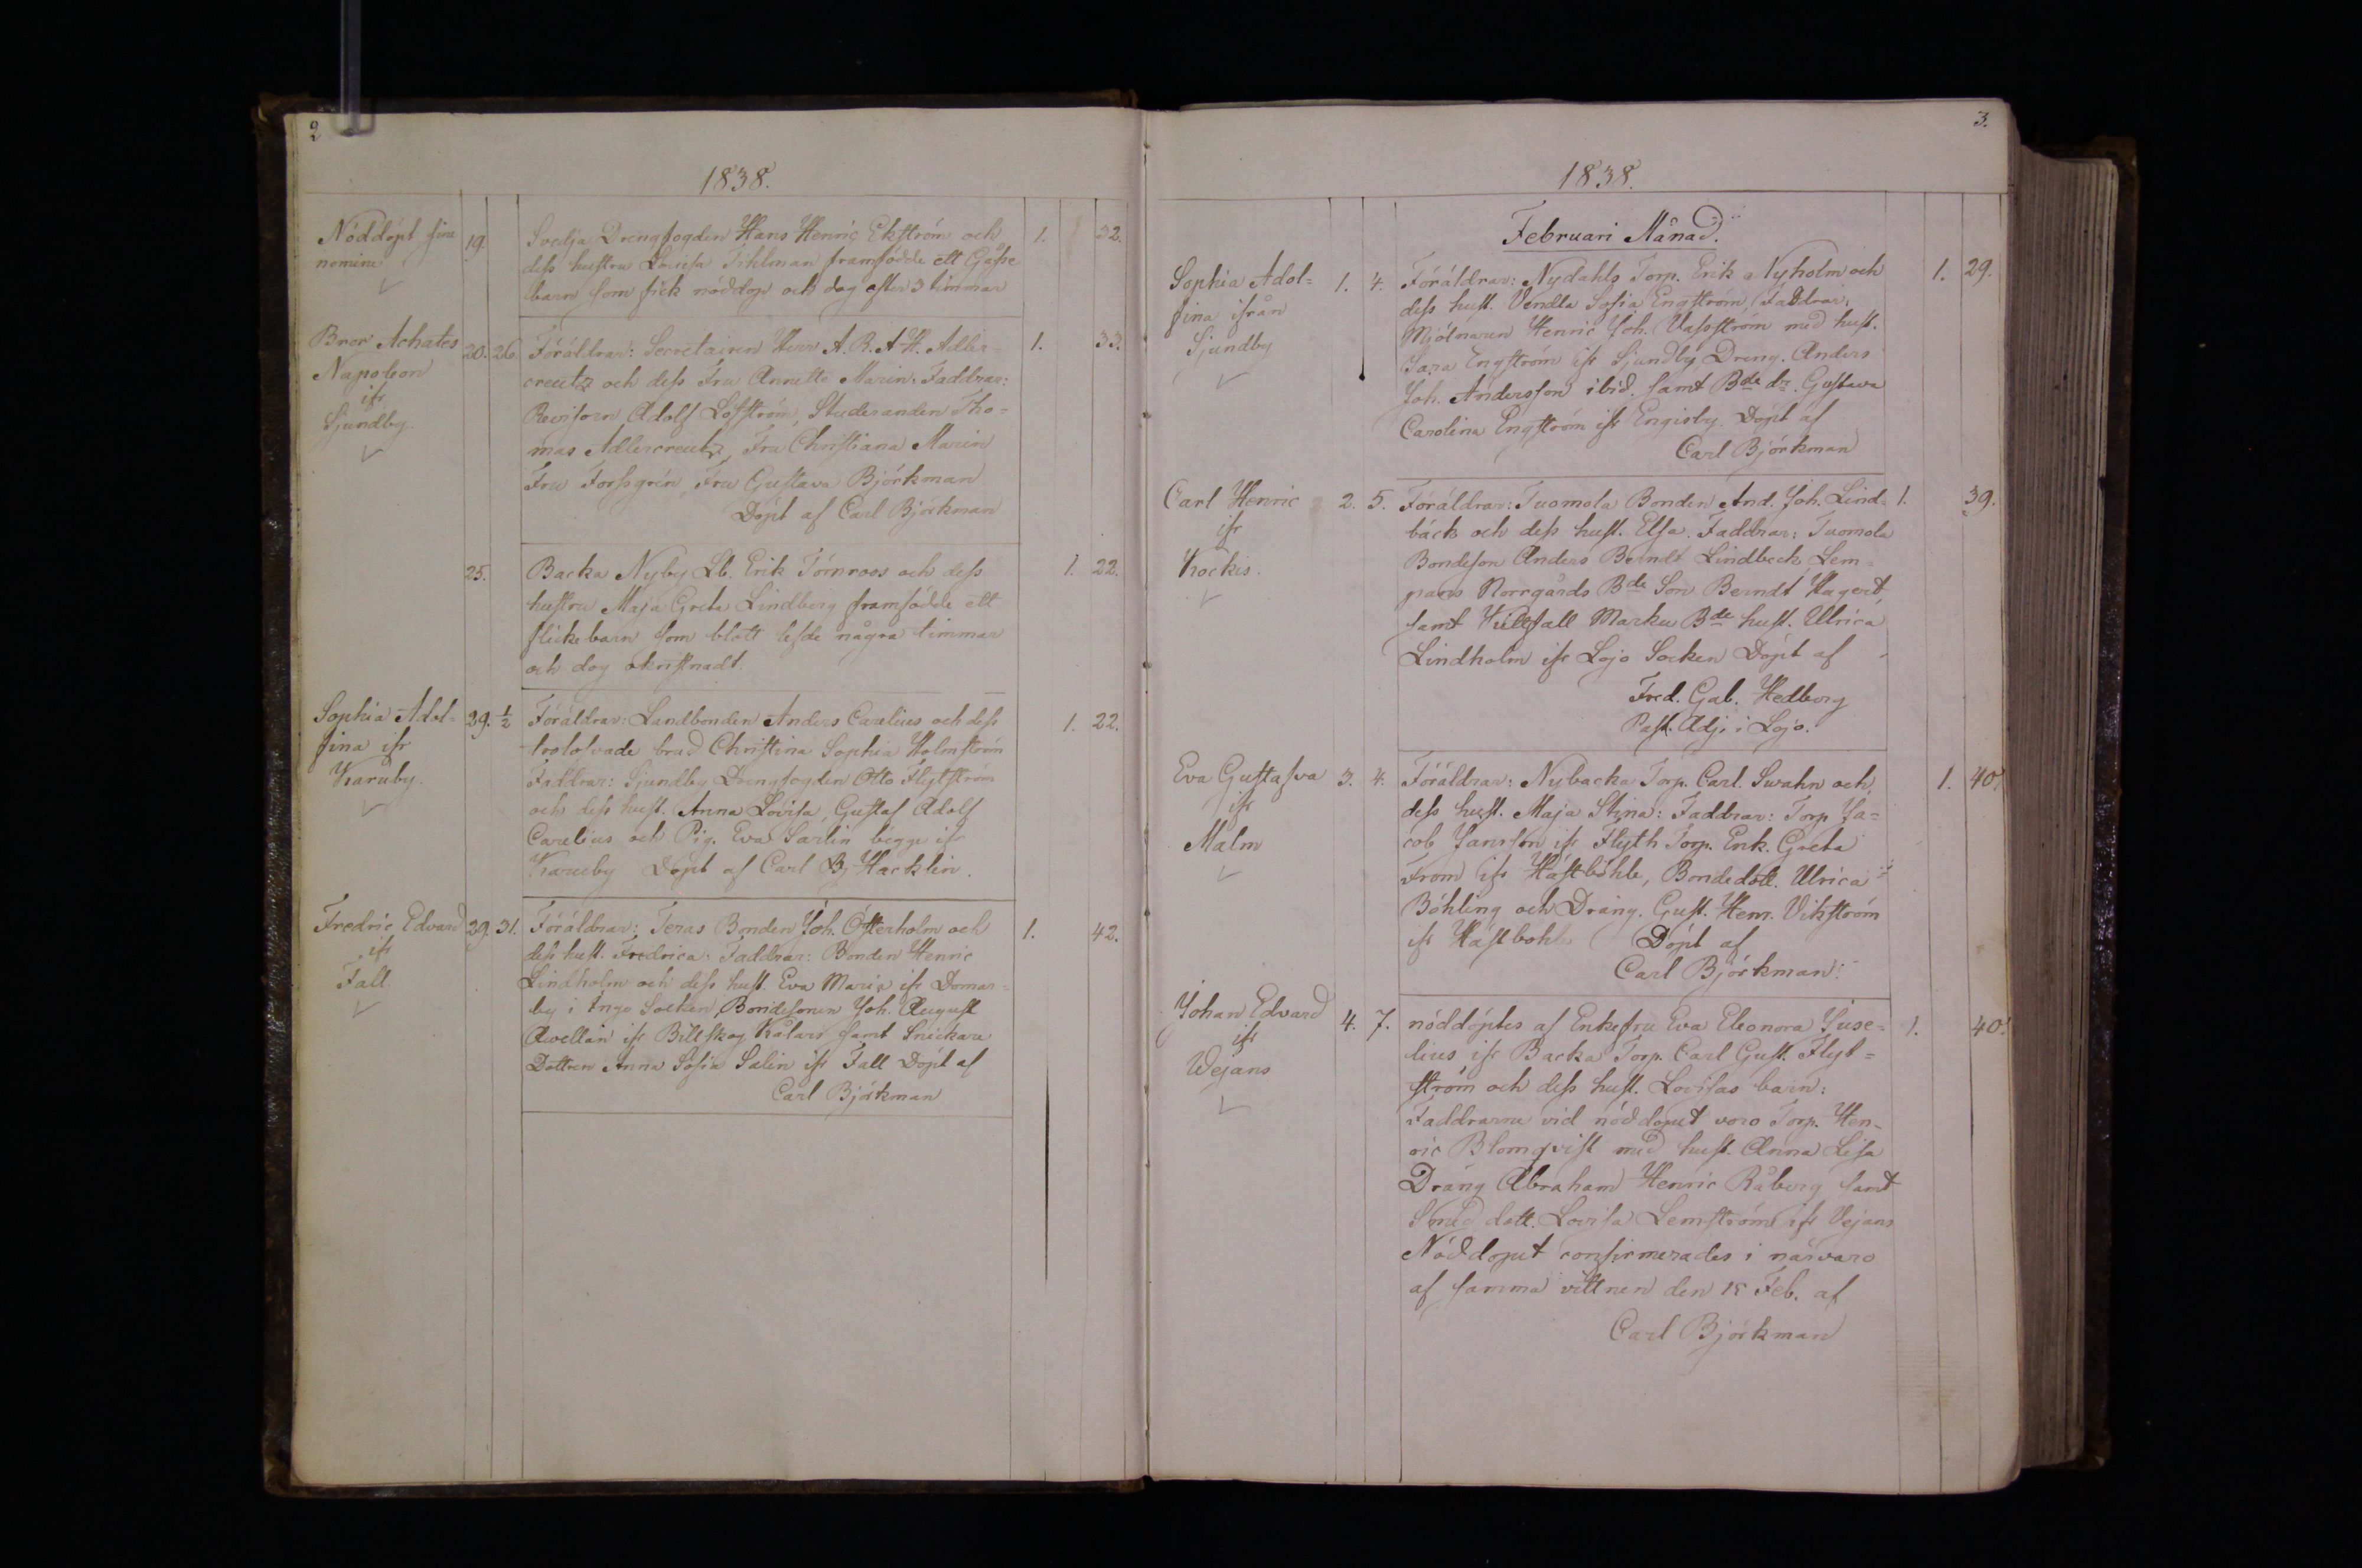 2
1838.
Nöddöpt sine
nomine
19.
Svedja Drengfogden Hans Henric Ekström och
dess hustru Lovisa Tihlman framfödde ett Gosse
barn som fick nöddop och dog efter 3 timmar
1.
32.
Bror Achates
Napoleon
ifr
Sjundby.
20. 26.
Föräldrar: Secretairen Herr A. R. A-H. Adler-
creutz och dess Fru Annette Marin. Faddrar:
Revisorn Adolf Löfström, Studeranden Tho-
mas Adlercreutz, Fru Christiana Marin
Fru Forssgrén, Fru Gustava Björkman
Döpt af Carl Björkman
1.
33.
25.
Backa Nyby Lb. Erik Törnroos och dess
hustru Maja Greta Lindberg framfödde ett
flickebarn som blott lefde några timmar
och dog okristnadt.
1. 22.
Sophia Adol-
fina ifr
Karuby.
29. ½
Föräldrar: Landbonden Anders Carelius och dess
trolofvade brud Christina Sophia Holmström
Faddrar: Sjundby Drengfogden Otto Flytström
och dess hust. Anna Lovisa, Gustaf Adolf
Carelius och Pig. Eva Sarlin begge ifr
Karuby Döpt af Carl Bj Hacklin.
1. 22.
Fredric Edvard
ifr
Fall.
29. 31.
Föräldrar: Teras Bonden Joh. Österholm och
dess hust. Fredrica. Faddrar: Bonden Henric
Lindholm och dess hust. Eva Maria ifr Domar-
by i Ingo Socken, Bondesonen Joh. August
Avellan ifr Billskog Kålars samt Snickare
Dottren Anna Sofia Salin ifr Fall Döpt af
Carl Björkman
1.
42.
3.
1838.
Februari Månad.
Sophia Adol-
fina ifrån
Sjundby
1. 4.
Föräldrar: Nydahls Torp. Erik Nyholm och
dess hust. Vendla Sofia Engström, Faddrar:
Mjölnaren Henric Joh. Vassström med hust.
Sara Engström ifr Sjundby, Dreng. Anders
Joh. Andersson ibid. samt Bde dr. Gustava
Carolina Engström ifr Engisby. Döpt af
Carl Björkman
1. 29.
Carl Henric
ifr
Kockis.
2. 5.
Föräldrar: Tuomola Bonden And. Joh. Lind-
bäck och dess hust. Elsa. Faddrar: Tuomola
Bondeson Anders Berndt Lindbeck, Lem-
pans Norrgårds Bde Son Berndt Hagert
samt Killfall Marku Bde hust. Ulrica
Lindholm ifr Lojo Socken Döpt af
Fred. Gab. Hedberg
Past. Adj. i Lojo.
1.
39.
Eva Gustafva
ifr
Malm
3. 4.
Föräldrar: Nybacka Torp. Carl. Swahn och
dess hust. Maja Stina: Faddrar: Torp Ja-
cob Jansson ifr Flyth Torp. Enk. Greta
From ifr Hästböhle, Bondedott. Ulrica
Böhling och Dräng. Gust. Henr. Vikström
ifr Hästbohle Döpt af
Carl Björkman.
1. 40.
Johan Edvard
ifr
Wejans
4. 7.
nöddöptes af Enkefru Eva Eleonora Juse-
lius ifr Backa Torp. Carl Gust. Flyt-
ström och dess hust. Lovisas barn:
Faddrarne vid nöddopet voro Torp. Hen-
ric Blomqvist med hust. Anna Lisa
Dräng Abraham Henric Råberg samt
Smed dott. Lovisa Lemström ifr Vejans
Nöddopet confirmerades i närvaro
af samma vittnen den 18 Feb. af
Carl Björkman
1.
40.